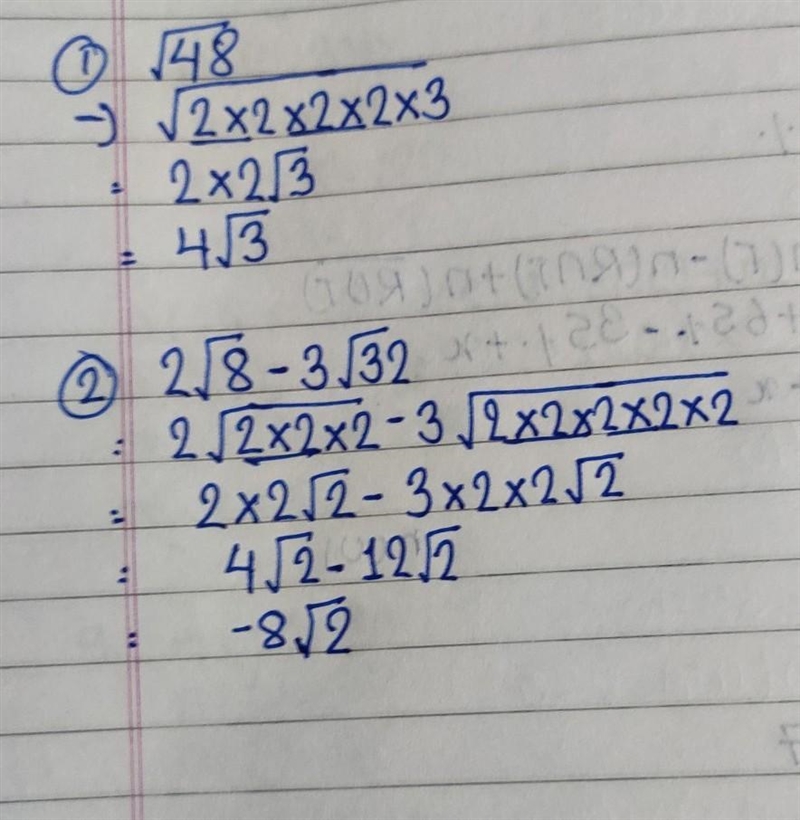 ① √48
→ √2×2×2×2×3
= 2×2√3
= 4√3
② 2√8 - 3√32
= 2√2×2×2 - 3√2×2×2×2×2
= 2×2√2 - 3×2×2√2
= 4√2 - 12√2
= -8√2